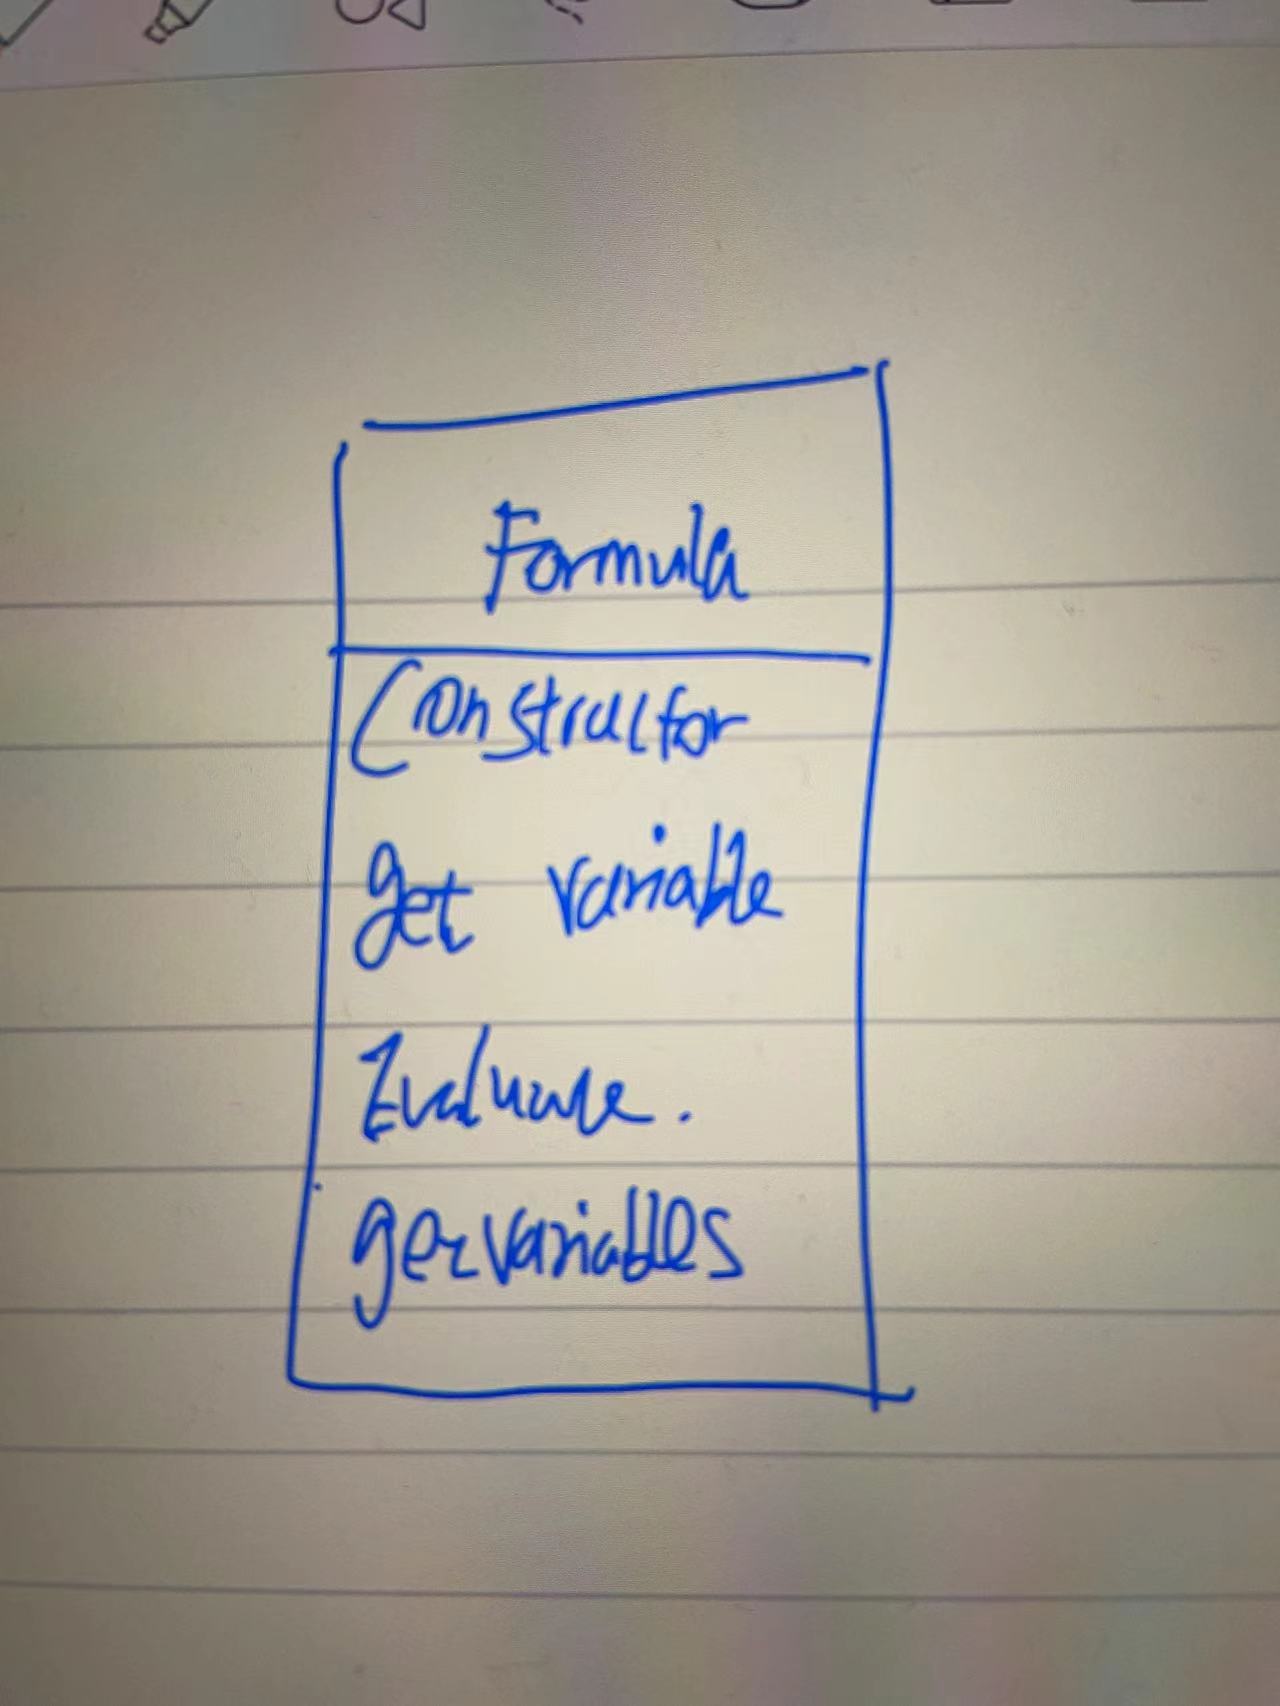 Formula
Constructor
get variable
Evaluate.
getvariables